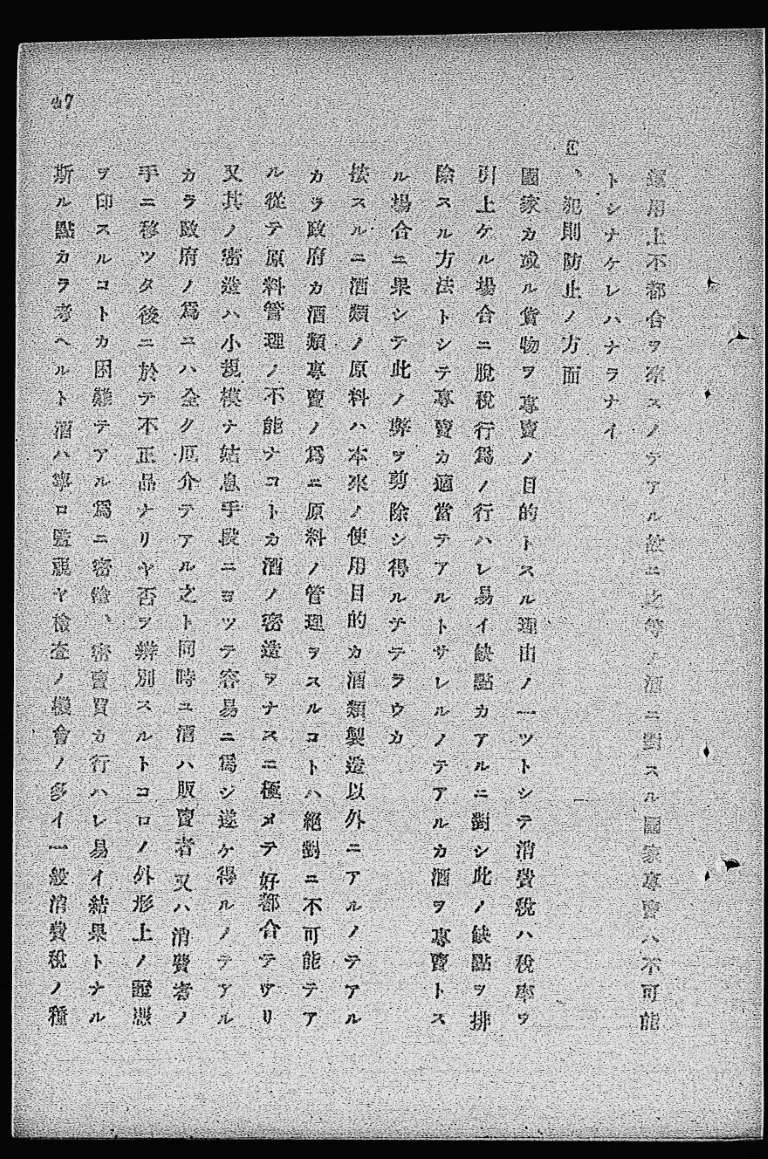 運用上不都合ヲ來スノテアル故ニ之等ノ酒ニ對スル國家專賣ハ不可能
トシナケレハナラナイ
E、犯則防止ノ方面
國家カ或ル貨物ヲ專賣ノ目的トスル理由ノ一ツトシテ消費稅ハ稅率ヲ
引上ケル場合ニ脫稅行爲ノ行ハレ易イ缺點カアルニ對シ此ノ缺點ヲ排
除スル方法トシテ專賣カ適當テアルトサレルノテアルカ酒ヲ專賣トス
ル場合ニ果シテ此ノ弊ヲ剪除シ得ルテテラウカ
按スルニ酒類ノ原料ハ本來ノ使用目的カ酒類製造以外ニアルノテアル
カラ政府カ酒類專賣ノ爲ニ原料ノ管理ヲスルコトハ絕對ニ不可能テア
ル從テ原料管理ノ不能ナコトカ酒ノ密造ヲナスニ極メテ好都合テアリ
又其ノ密造ハ小規模ナ姑息手段ニヨツテ容易ニ爲シ遂ケ得ルノテアル
カラ政府ノ爲ニハ全ク厄介テアル之ト同時ニ酒ハ販賣者又ハ消費者ノ
手ニ移ツタ後ニ於テ不正品ナリヤ否ヲ辨別スルトコロノ外形上ノ證憑
ヲ印スルコトカ困難テアル爲ニ密輸、密賣買カ行ハレ易イ結果トナル
斯ル點カラ考ヘルト酒ハ寧ロ監視ヤ檢查ノ機會ノ多イ一般消費稅ノ種
7